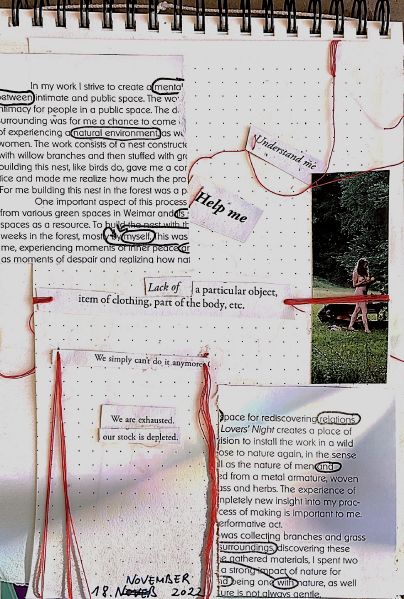 In my work I strive to create a menta
between intimate and public space. The wo
ntimacy for people in a public space. The d
surrounding was for me a chance to come
of experiencing a natural environment, as w
women. The work consists of a nest constructe
with willow branches and then stuffed with gr
building this nest, like birds do, gave me a cor
lice and made me realize how much the pro
For me building this nest in the forest was a p
One important aspect of this process
from various green spaces in Weimar and is
spaces as a resource. To build the nest with th
weeks in the forest, mostly by myself. This was
me, experiencing moments of inner peace ar
as moments of despair and realizing how nat
Understand me
Help me
Lack of a particular object,
item of clothing, part of the body, etc.
We simply can't do it anymore.
We are exhausted,
our stock is depleted.
pace for rediscovering relations
Lovers' Night creates a place of
ision to install the work in a wild
ose to nature again, in the sense
ll as the nature of men and
ed from a metal armature, woven
ass and herbs. The experience of
mpletely new insight into my prac-
cess of making is important to me.
erformative act.
was collecting branches and grass
surroundings, discovering these
e gathered materials, I spent two
a strong impact of nature for
d being one with nature, as well
ture is not always gentle.
NOVEMBER
18. 2022